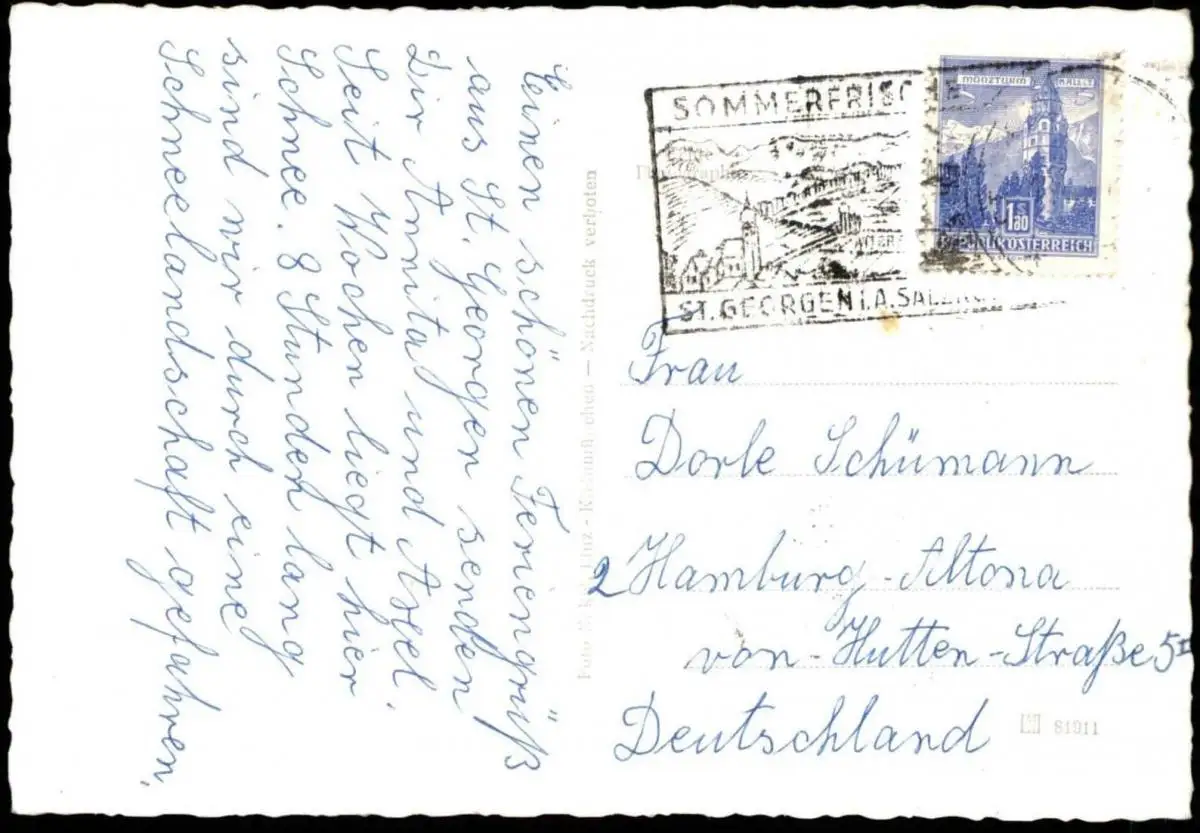 Einen schönen Feriengrüß
aus St. Georgen senden
Dir Annita und Axel.
Seit Wochen liegt hier
Schnee. 8 Stunden lang
sind wir durch eine
Schneelandschaft gefahren.
Nachdruck verboten
SOMMERFRISCHE
ST. GEORGEN I.A. SALZB
MÜNZTURM HALL I. T.
1.80
REPUBLIK ÖSTERREICH
Frau
Dorle Schümann
2 Hamburg-Altona
von-Hutten-Straße 5 II
Deutschland
81911